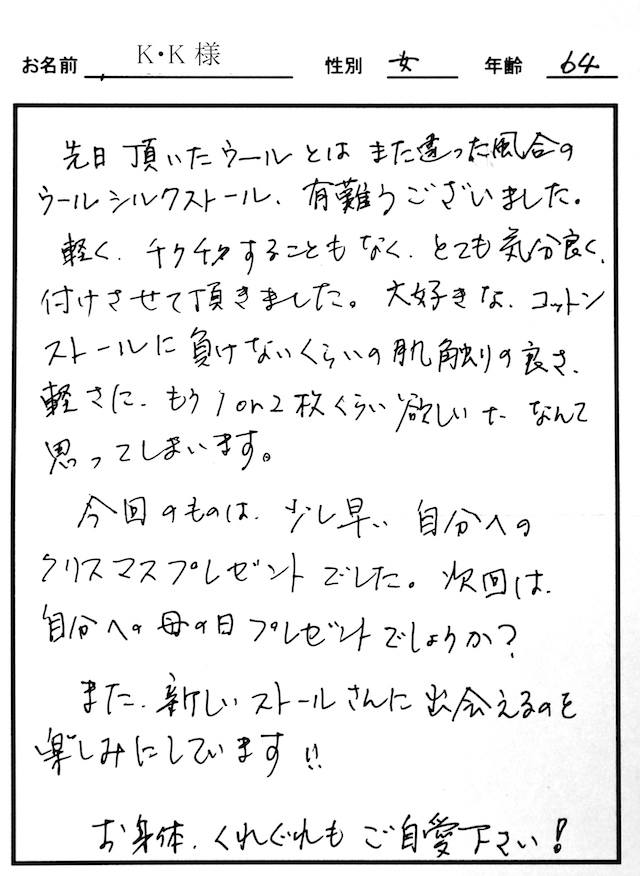 お名前 K・K様 性別 女 年齢 64
先日頂いたウールとはまた違った風合の
ウールシルクストール、有難うございました。
軽く、チクチクすることもなく、とても気分良く、
付けさせて頂きました。大好きな、コットン
ストールに負けないくらいの肌触りの良さ、
軽さに、もう1or2枚くらい欲しいナ、なんて
思ってしまいます。
今回のものは、少し早い自分への
クリスマスプレゼントでした。次回は、
自分への母の日プレゼントでしょうか?
また、新しいストールさんに出会えるのを
楽しみにしています!!
お身体、くれぐれもご自愛下さい!